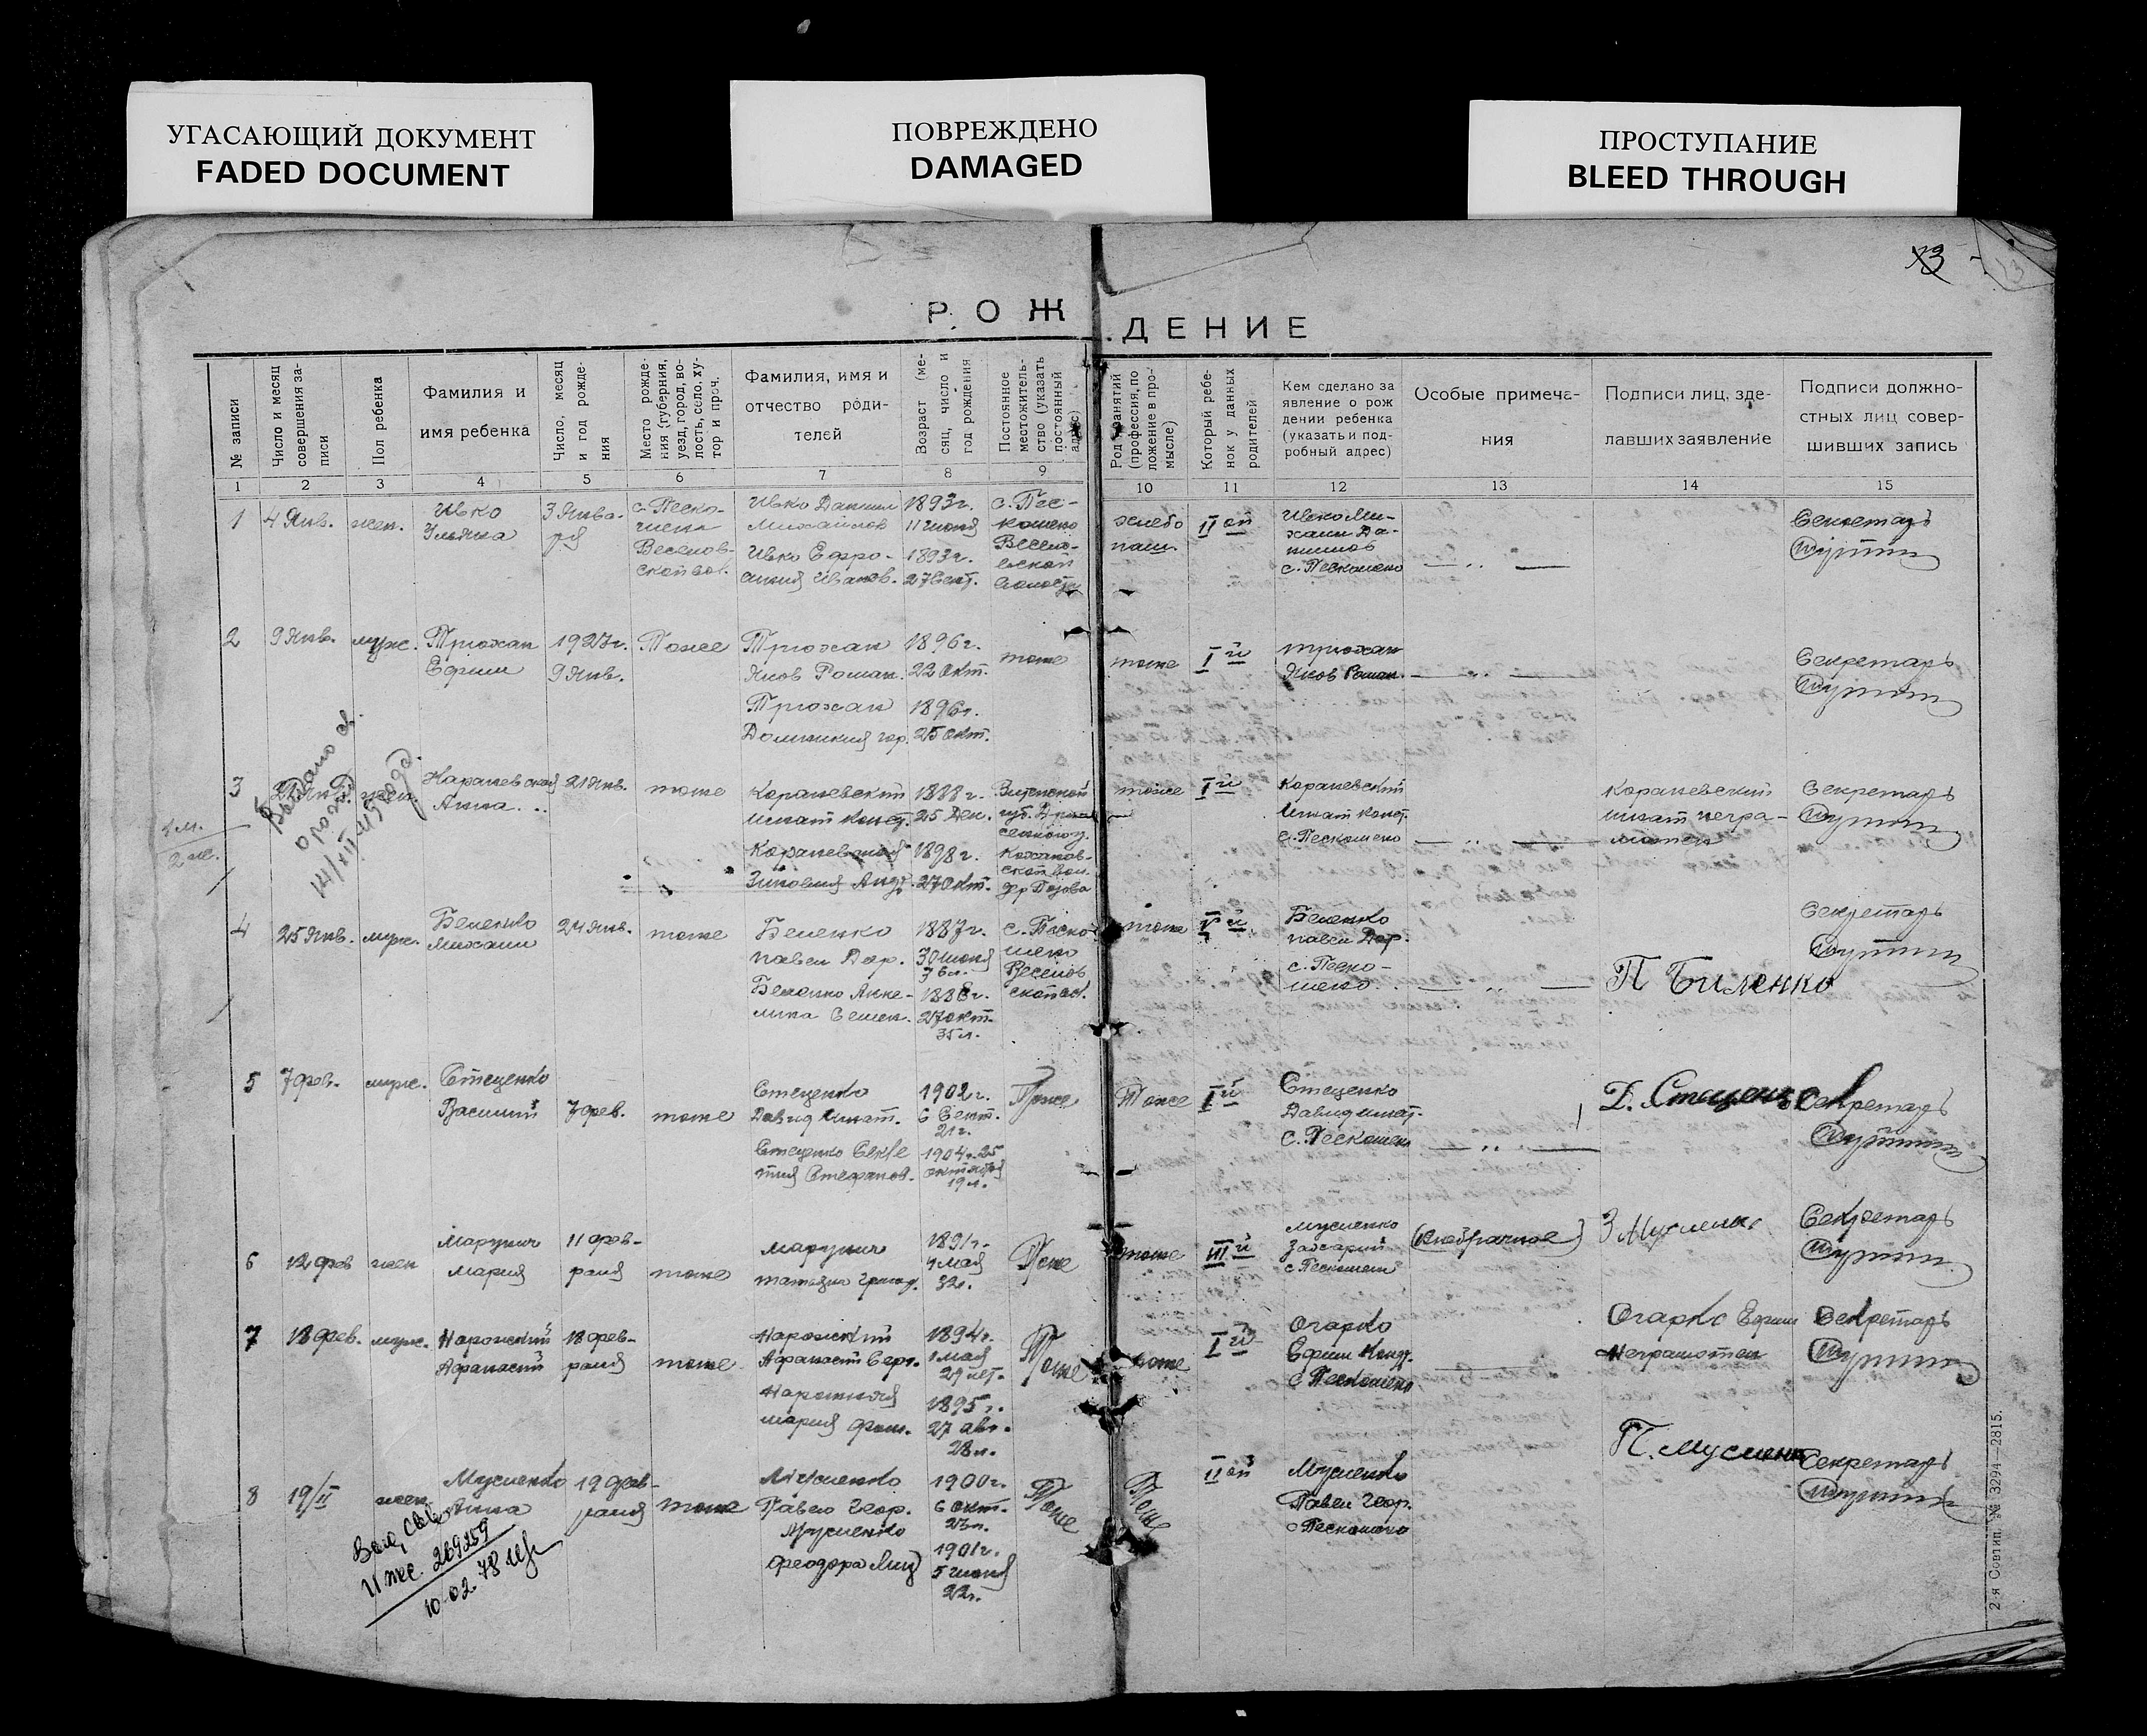 УГАСАЮЩИЙ ДОКУМЕНТ
FADED DOCUMENT
ПОВРЕЖДЕНО
DAMAGED
ПРОСТУПАНИЕ
BLEED THROUGH
13
РОЖДЕНИЕ
№ записи
Число и месяц совершения записи
Пол ребенка
Фамилия и
имя ребенка
Число, месяц
и год рожде-
ния
Место рожде-
ния (губерния,
уезд, город, во-
лость, село, ху-
тор и проч.
Фамилия, имя и
отчество роди-
телей
Возраст (ме-
сяц, число и
год рождения
Постоянное
местожитель-
ство (указать
постоянный
адрес)
Род занятий
(профессия, по
ложение в про-
мысле)
Который ребе-
нок у данных
родителей
Кем сделано за
явление о рож
дении ребенка
(указать и под-
робный адрес)
Особые примеча-
ния
Подписи лиц, сде-
лавших заявление
Подписи должно-
стных лиц совер-
шивших запись
1 2 3 4 5 6 7 8 9 10 11 12 13 14 15
1
4 Янв.
жен.
Ивко
Ульяна
3 Янва-
ря
с. Песко-
Веселов-
ской вол.
Ивко Даниил
Михайлов
Ивко Ефро-
синия Иванов.
1893 г.
11 июня
1893 г.
27 Сент.
с. Пес-
кошено
Весело-
вской
хлебо
паш.
II ой
Ивко Ми-
хаил Да-
нилов
с. Пескошено
Секретарь
2
9 Янв.
муж.
Трюхан
Ефим
1923 г.
9 Янв.
Тоже
Трюхан
Яков Роман.
Трюхан
1896 г.
22 Окт.
1896 г.
25 окт.
тоже
тоже
I й
Трюхан
Яков Роман.
Секретарь
3
жен.
Анна
21 Янв.
тоже
Караневский
Игнат Конст.
Зиновия Андр.
1888 г.
25 Дек.
1898 г.
27 Окт.
Витебской
губ.
тоже
I й
Караневский
Игнат Конст.
с. Пескошено
Караневский
Игнат негра-
мотен
Секретарь
Выдано св.
14/XII 45 года.
4
25 Янв.
муж.
Беленко
Михаил
24 Янв.
тоже
Беленко
Павел Дор.
Беленко Анже-
лика Семен.
1887 г.
30 июня
1888 г.
27 окт.
35 л.
с. Песко
шено
Веселов
ской вол.
тоже
V й
Беленко
Павел Дор.
с. Песко-
шено
П Биленко
Секретарь
5
7 фев.
муж.
Стеценко
Василий
7 фев.
тоже
Стеценко
Давид Игнат.
Стеценко Секле
тия Стефанов.
1902 г.
6 Сент.
21 г.
1904 г. 25
октября
19 л.
Тоже
Тоже
I й
Стеценко
Давид Игнат.
с. Пескошено
Д. Стеценко
Секретарь
6
12 фев
жен
Марунич
Мария
11 фев-
раля
тоже
Марунич
Татьяна Григор.
1891 г.
4 мая
32 л.
Тоже
тоже
III й
Мусиенко
Захарий
с Пескошено
(внебрачное)
З Мусиенко
Секретарь
7
18 фев.
муж.
Нарожний
Афанасий
18 фев-
раля
тоже
Нарожний
Афанасий Серг.
Нарожная
Мария Фом.
1894 г.
1 мая
29 лет.
1895 г.
27 авг.
28 л.
Тоже
тоже
I й
Огарко
Ефим Конд.
с Пескошено
Огарко Ефим
Неграмотен
Секретарь
8
19/II
жен.
Мусиенко
Анна
19 фев-
раля
тоже
Мусиенко
Павел Геор.
Мусиенко
Феодора
1900 г.
6 окт.
23 л.
1901 г.
5 июня
22 г.
Тоже
Тоже
II ой
Мусиенко
Павел Геор.
с Пескошено
П. Мусиенко
Секретарь
269259
10.02.78
2-я Совтип. № 3294—2815.